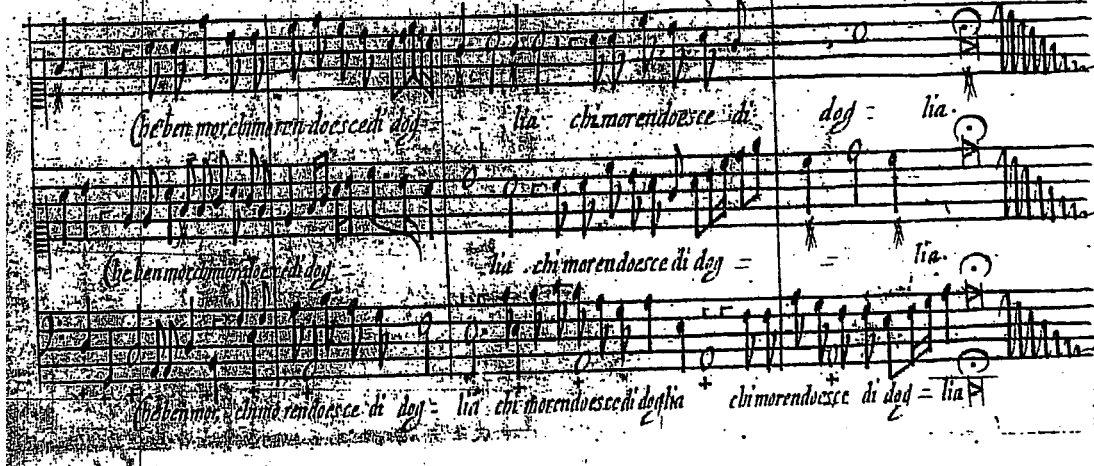 Che ben mor chi morendo esce di dog = lia chi morendo esce di dog = lia.
Che ben mor chi morendo esce di dog = lia chi morendo esce di dog = = lia.
Che ben mor chi morendo esce di dog = lia chi morendo esce di doglia chi morendo esce di dog = lia